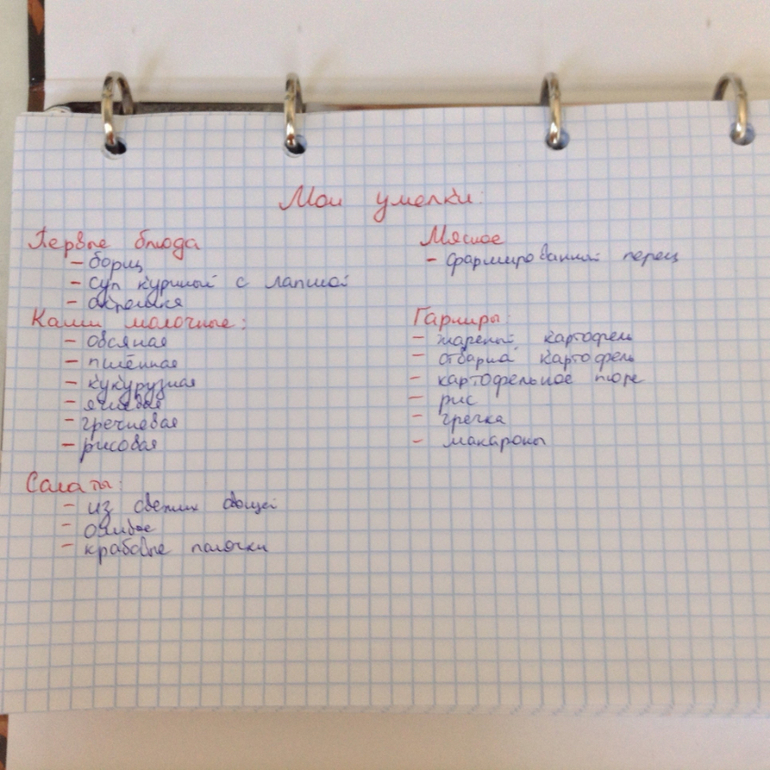 Мои умелки:
Первые блюда
- борщ
- суп куриный с лапшой
- окрошка
Каши молочные:
- овсяная
- пшённая
- кукурузная
- ячневая
- гречневая
- рисовая
Салаты:
- из свежих овощей
- оливье
- крабовые палочки
Мясное
- фармированный перец
Гарниры:
- жареный картофель
- отварной картофель
- картофельное пюре
- рис
- гречка
- макароны